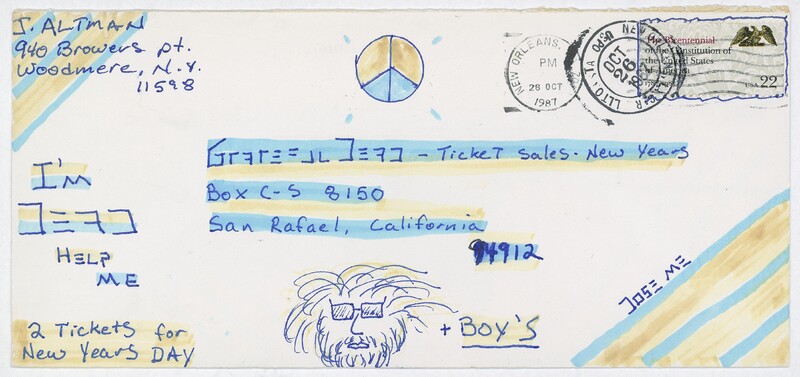 J. ALTMAN
940 Browers pt.
Woodmere, N.Y.
11598
NEW ORLEANS,
PM
26 OCT
1987
USPO NEW
OCT
26
1987
The Bicentennial
of the Constitution of
the United States
of America
USA 22
GrateFul Dead - Ticket Sales. New Years
Box C-S 8150
San Rafael, California
94912
I'm
Dead
HELP
ME
2 Tickets for
New Years DAY
+ BOY'S
DOSE ME